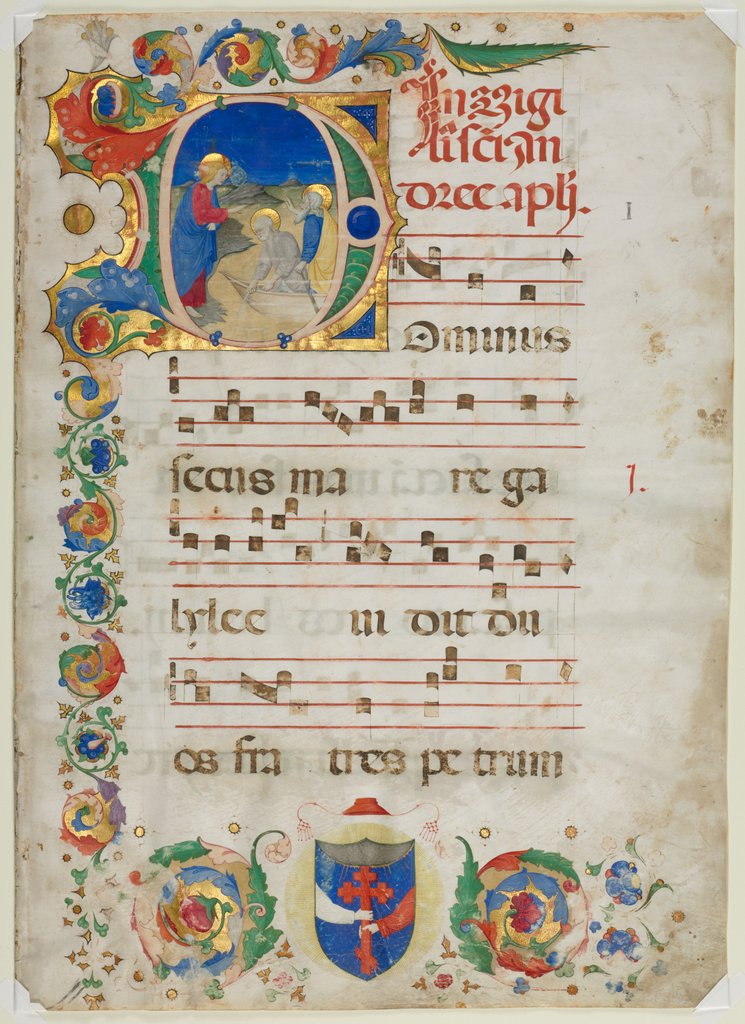 In vigi
li sci An
dree apli.
I
DOminus
secus ma re ga
1.
lylee ui dit du
os fra tres pe trum